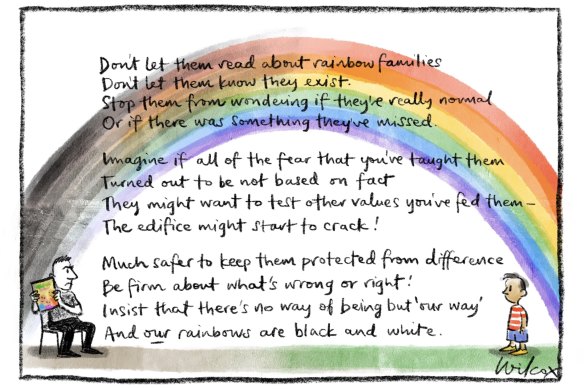 Don't let them read about rainbow families
Don't let them know they exist.
Stop them from wondering if they're really normal
Or if there was something they've missed.
Imagine if all of the fear that you've taught them
Turned out to be not based on fact
They might want to test other values you've fed them —
The edifice might start to crack!
Much safer to keep them protected from difference
Be firm about what's wrong or right!
Insist that there's no way of being but 'our way'
And our rainbows are black and white.
Wilcox